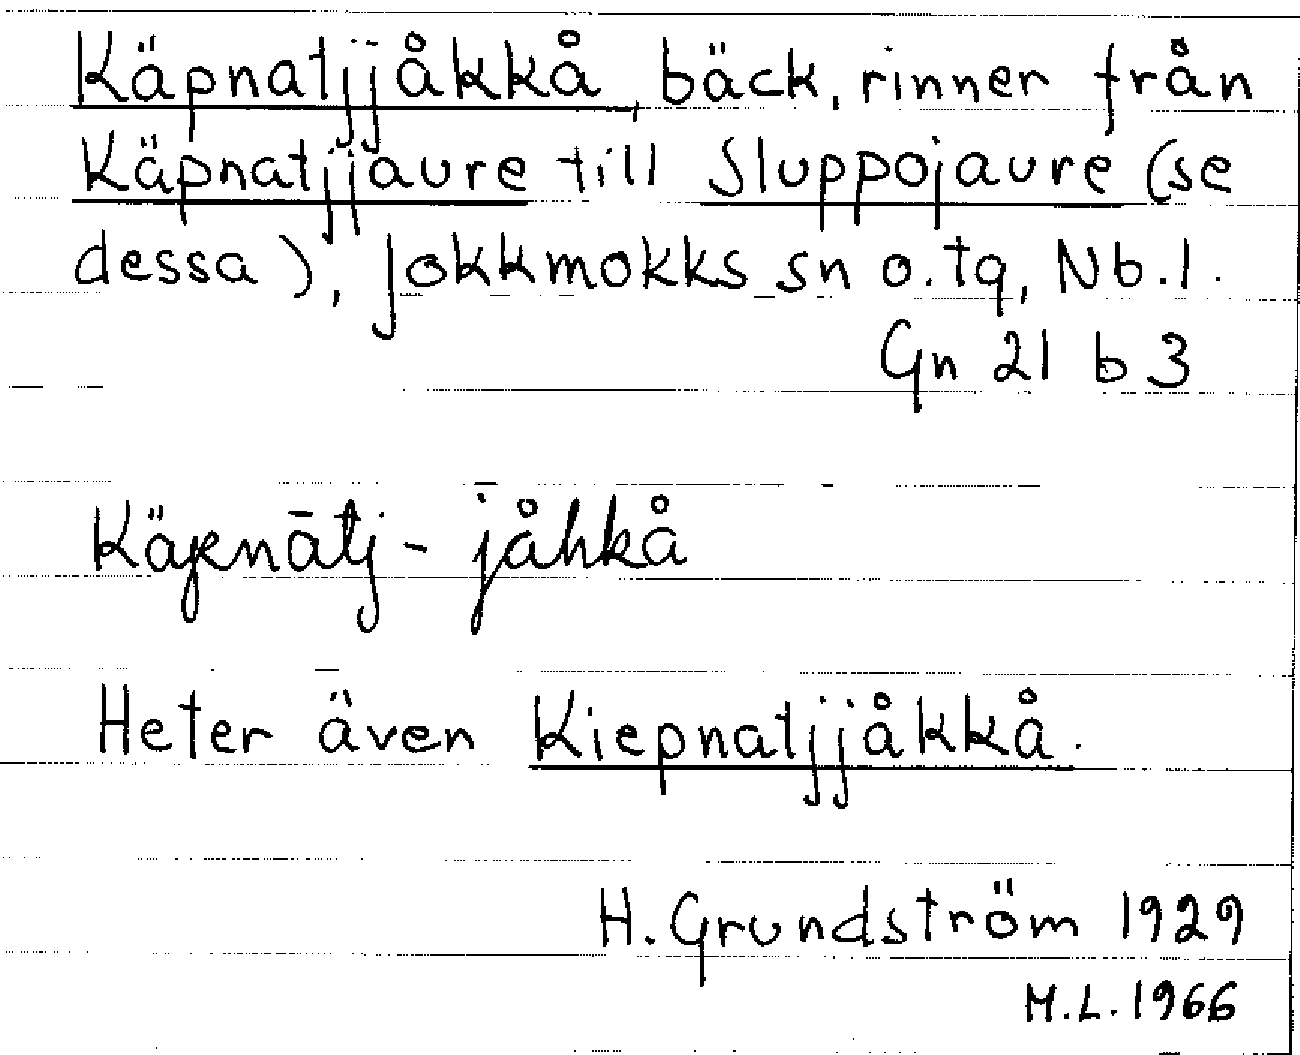 Käpnatjjåkkå, bäck, rinner från
Käpnatjjaure till Sluppojaure (se
dessa), Jokkmokks sn o. tg, Nb. l.
Gn 21 b 3
Käpnātj - jåhkå
Heter även Kiepnatjjåkkå.
H. Grundström 1929
M.L. 1966